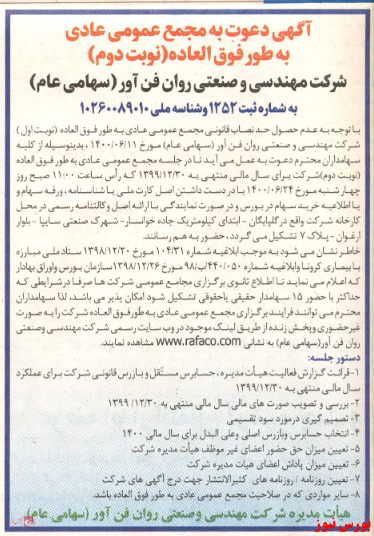 آگهی دعوت به مجمع عمومی عادی
به طور فوق العاده(نوبت دوم)
شرکت مهندسی و صنعتی روان فن آور (سهامی عام)
به شماره ثبت ۱۲۵۲ وشناسه ملی ۱۰۲۶۰۰۸۹۰۱۰
با توجه به عدم حصول حد نصاب قانونی مجمع عمومی عادی به طور فوق العاده (نوبت اول)
شرکت مهندسی و صنعتی روان فن آور (سهامی عام) مورخ ۱۴۰۰/۰۶/۱۱، بدینوسیله از کلیه
سهامداران محترم دعوت به عمل می آید تا در جلسه مجمع عمومی عادی به طور فوق العاده
(نوبت دوم)شرکت برای سال مالی منتهی به ۱۳۹۹/۱۲/۳۰ که رأس ساعت ۱۱:۰۰ صبح روز
چهار شنبه مورخ ۱۴۰۰/۰۶/۲۴ با در دست داشتن اصل کارت ملی یا شناسنامه ، ورقه سهام و
یا اطلاعیه خرید سهام در بورس و در صورت نمایندگی با ارائه اصل وکالتنامه رسمی در محل
کارخانه شرکت واقع در گلپایگان - ابتدای کیلومتریک جاده خوانسار- شهرک صنعتی سایپا - بلوار
ارغوان - پلاک ۷ تشکیل می گردد، حضور به هم رسانند.
خاطر نشان می شود به موجب ابلاغیه شماره ۱۰۴/۳۱ مورخ ۱۳۹۸/۱۲/۲۰ ستاد ملی مبارزه
با بیماری کرونا وابلاغیه شماره ۴۴۰/۰۵۰/ب/۹۸ مورخ ۱۳۹۸/۱۲/۲۶ سازمان بورس واوراق بهادار
که اعلام می نماید تا اطلاع ثانوی برگزاری مجامع عمومی شرکت ها صرفا در شرایطی که
حداکثر با حضور ۱۵ سهامدار حقیقی یاحقوقی تشکیل شود امکان پذیر می باشد، لذا سهامداران
محترم می توانند فرایند برگزاری مجمع عمومی عادی به طور فوق العاده شرکت را به صورت
غیر حضوری وپخش زنده از طریق لینک موجود در وب سایت رسمی شرکت مهندسی وصنعتی
روان فن آور (سهامی عام) به نشانی www.rafaco.com مشاهده نمایند.
دستور جلسه:
۱- قرائت گزارش فعالیت هیأت مدیره ، حسابرس مستقل و بازرس قانونی شرکت برای عملکرد
سال مالی منتهی به ۱۳۹۹/۱۲/۳۰
۲- بررسی و تصویب صورت های مالی سال مالی منتهی به ۱۳۹۹/۱۲/۳۰
۳- تصمیم گیری درمورد سود تقسیمی
۴- انتخاب حسابرس وبازرس اصلی وعلی البدل برای سال مالی ۱۴۰۰
۵- تعیین میزان حق حضور اعضای غیر موظف هیأت مدیره شرکت
۶- تعیین میزان پاداش اعضای هیأت مدیره شرکت
۷- تعیین روزنامه / روزنامه های کثیرالانتشار جهت درج آگهی های شرکت
۸- سایر مواردی که در صلاحیت مجمع عمومی عادی به طور فوق العاده باشد.
هیأت مدیره شرکت مهندسی وصنعتی روان فن آور (سهامی عام)
بورس نیوز